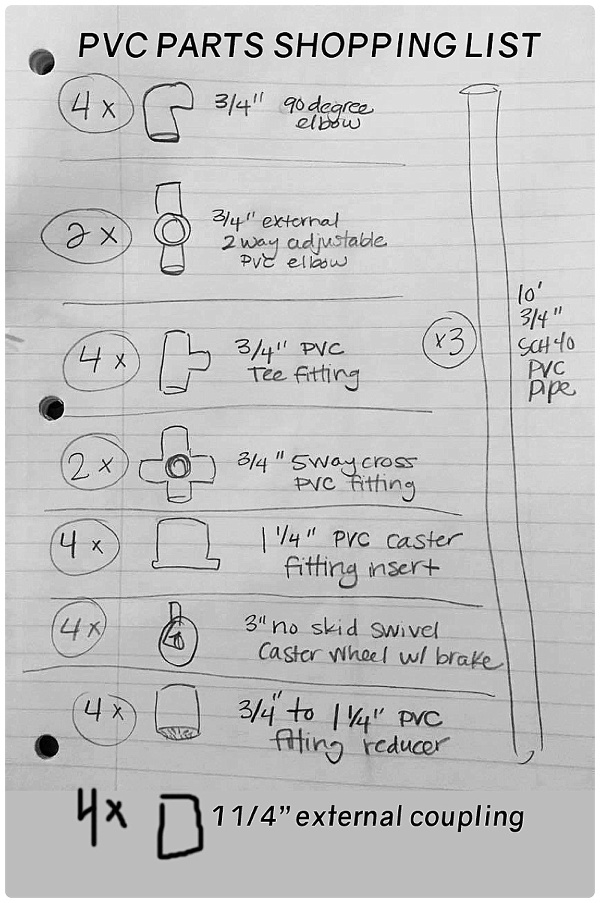 PVC PARTS SHOPPING LIST
4 x 3/4" 90 degree
elbow
2 x 3/4" external
2 way adjustable
PVC elbow
4 x 3/4" PVC
Tee fitting
2 x 3/4" 5 way cross
PVC fitting
4 x 1 1/4" PVC caster
fitting insert
4 x 3" no skid swivel
Caster wheel w/ brake
4 x 3/4" to 1 1/4" PVC
fitting reducer
x3
10'
3/4"
SCH 40
PVC
pipe
4x 1 1/4" external coupling